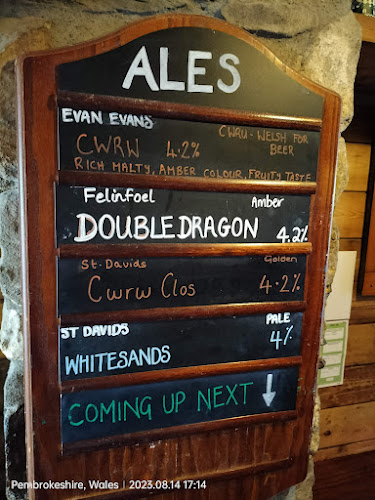 ALES
EVAN EVANS
CWRU - WELSH FOR BEER
CWRW 4.2%
RICH MALTY, AMBER COLOUR, FRUITY TASTE
Felinfoel Amber
DOUBLE DRAGON 4.2%
St-Davids Golden
Cwrw Clos 4.2%
ST DAVIDS PALE
WHITESANDS 4%
COMING UP NEXT ↓
Pembrokeshire, Wales | 2023.08.14 17:14